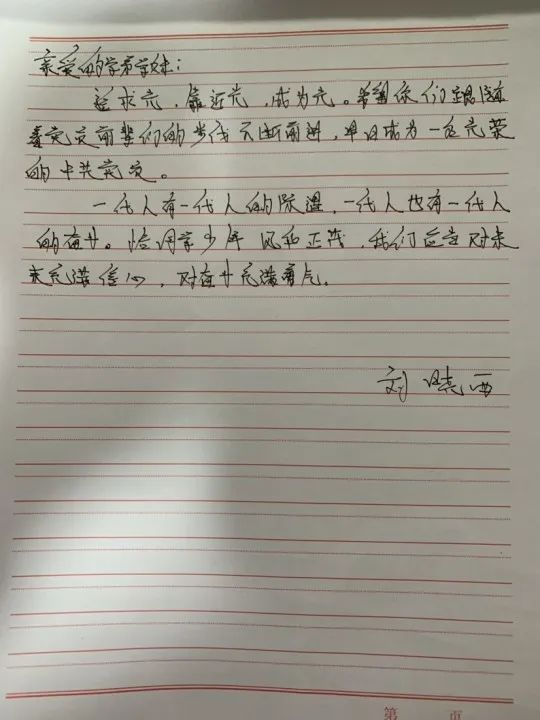 亲爱的学弟学妹:
追求光,靠近光,成为光。希望你们跟随
着党员前辈们的步伐不断前进,早日成为一名光荣
的中共党员。
一代人有一代人的际遇,一代人也有一代人
的奋斗。恰同学少年 风华正茂,我们应当对未
来充满信心,对奋斗充满勇气。
刘晓西
第 页